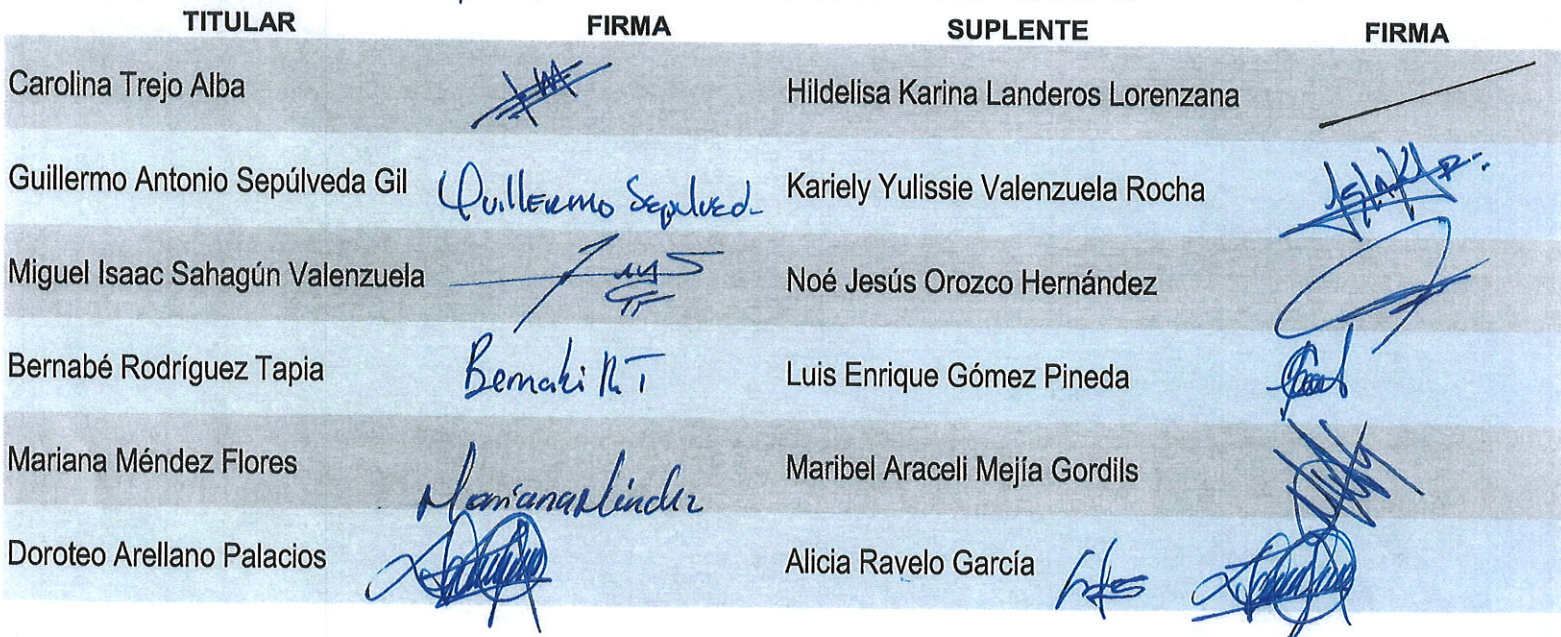 TITULAR FIRMA SUPLENTE FIRMA
Carolina Trejo Alba Hildelisa Karina Landeros Lorenzana
Guillermo Antonio Sepúlveda Gil Guillermo Sepulved Kariely Yulissie Valenzuela Rocha
Miguel Isaac Sahagún Valenzuela Noé Jesús Orozco Hernández
Bernabé Rodríguez Tapia R T Luis Enrique Gómez Pineda
Mariana Méndez Flores Mariana Maribel Araceli Mejía Gordils
Doroteo Arellano Palacios Alicia Ravelo García